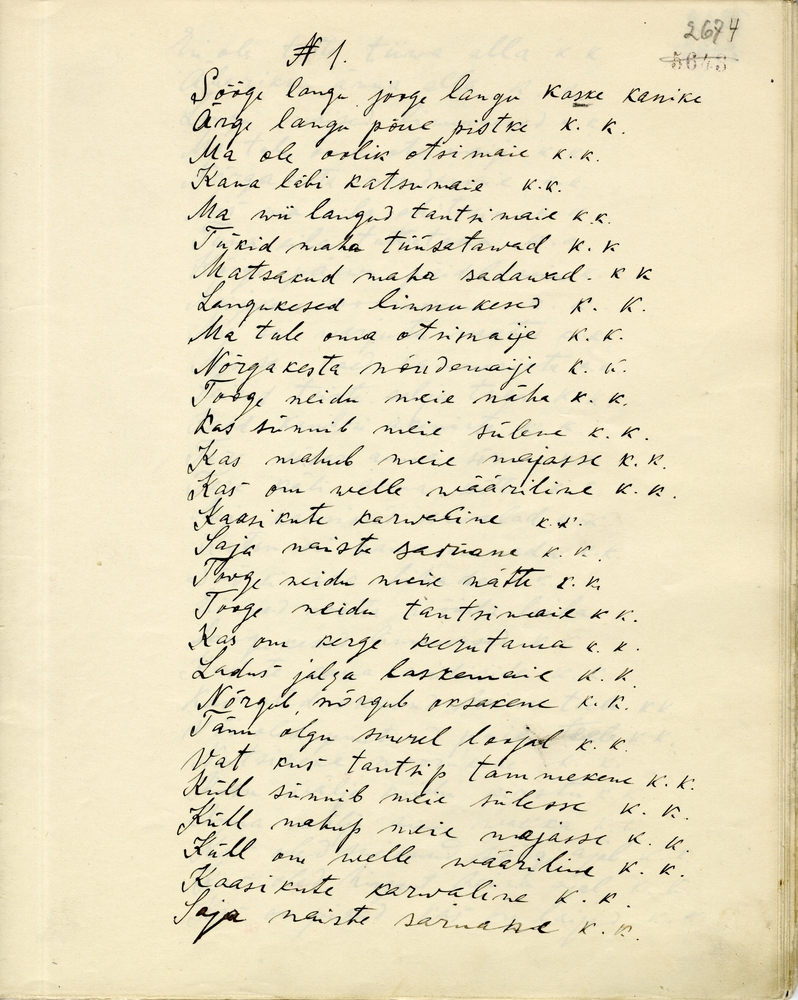 2674
5643
№ 1.
Sööge langu jooge langu kaske kanike
Ärge langu põue pistke k. k.
Ma ole oolik otsimaie k.k.
Kaua läbi katsumaie k.k.
Ma wii langud tantsimaie k.k.
Tükid maha tüüsatawad k. k
Matsakud maha sadawad. k k
Langukesed linnukesed k. k.
Ma tule oma otsimaije k. k.
Nõrgakesta nõudemaije k. k.
Tooge neidu meie näha k. k.
Kas sünnib meie sülene k. k.
Kas mahub meie majasse k. k.
Kas om welle wääriline k. k.
Kaasikute karwaline k.k.
Saja naiste sarnane k. k.
Tooge neidu meie nätte k. k.
Tooge neidu tantsimaie k k.
Kas om kerge keerutama k. k.
Ladus jalga laskemaie k. k.
Nõrgub, nõrgub oksakene k. k.
Tänu olgu suurel loojal k. k.
Vat kus tantsip tammekene k. k.
Küll sünnib meie sülesse k. k.
Küll mahup meie majasse k. k.
Küll om welle wääriline k. k.
Kaasikute karwaline k. k.
Saja naiste sarnane k. k.